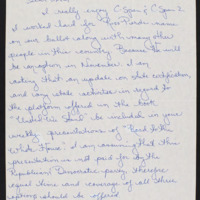 I really enjoy C-Span & C-Span 2.
I worked hard for Ross Perot's name
on our ballot along with many other
people in this country because he will
be an option in November. I am
asking that an update on state certification
and any state activities in regard to
the platform offered in the book
"United We Stand" be included in your
weekly presentations of "Road to the
White House". I am assuming that this
presentation is not paid for by the
Republican/Democratic party, therefore
equal time and coverage of all three
options should be offered.